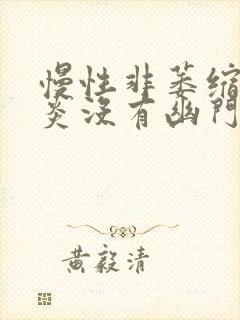 慢性非萎缩
炎没有幽門
黄毅清